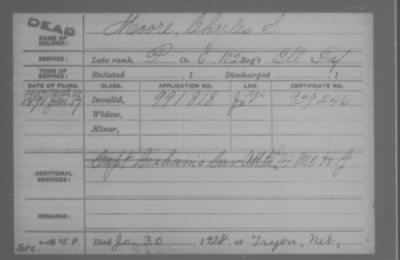 DEAD
NAME OF SOLDIER: Moore, Charles S
SERVICE: Late rank, P Co. E, 122 Reg't Ill Inf
TERM OF SERVICE: Enlisted , 1 Discharged , 1
DATE OF FILING. CLASS. APPLICATION NO. LAW. CERTIFICATE NO.
1891 Jan 17 Invalid, 991818
Widow,
Minor,
ADDITIONAL SERVICES: Capt Graham's Cav Att to 4 Mo H G
REMARKS:
Died Jan 30, 1928, at Tryon, Neb,